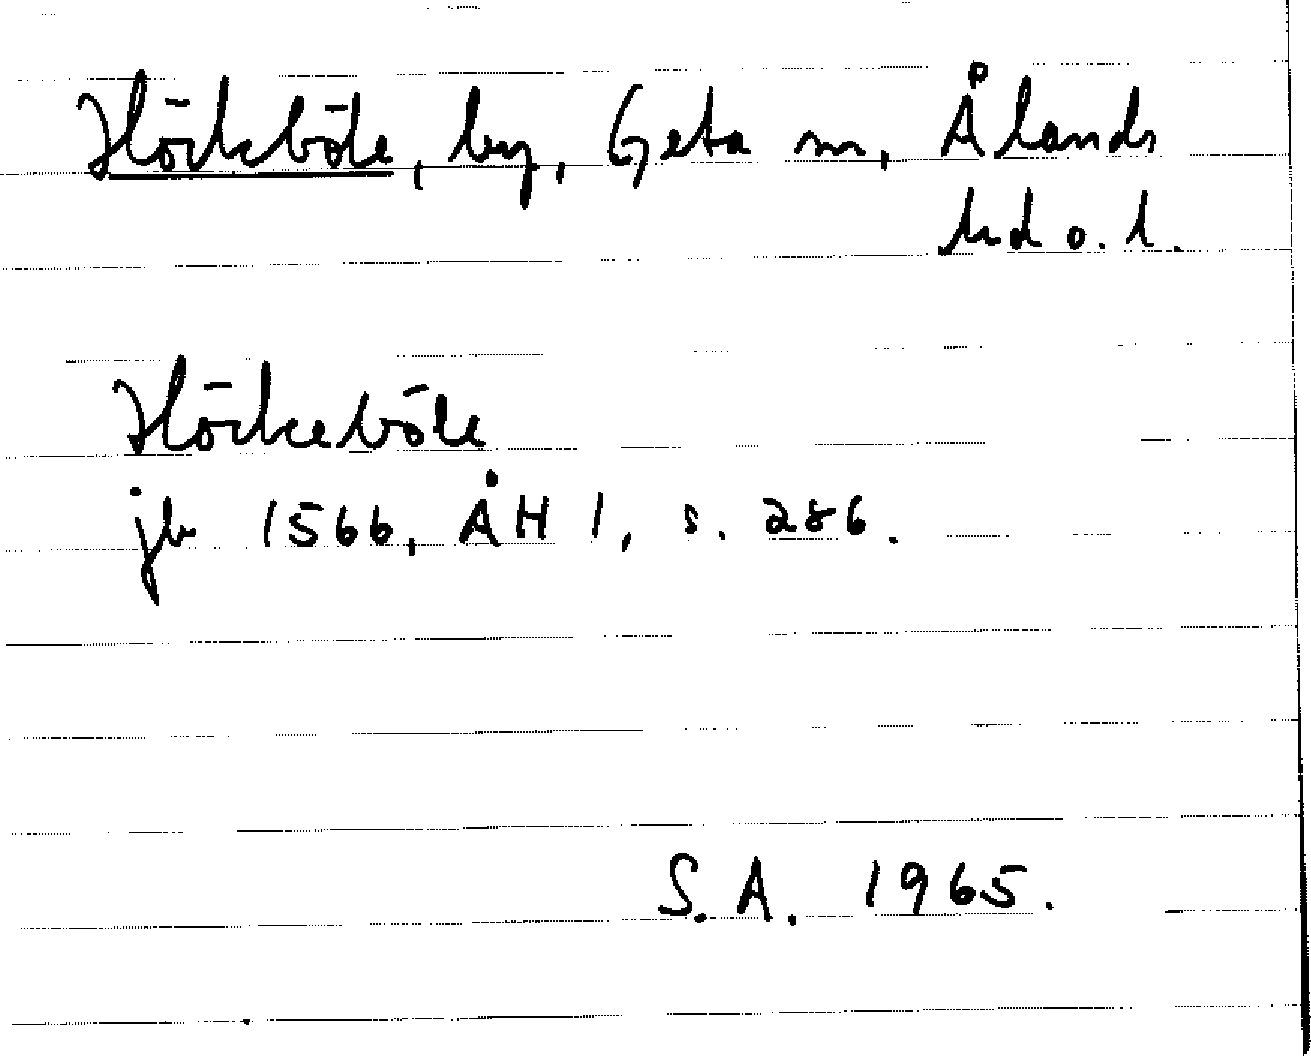 Höckböle, by, Geta sn, Ålands
hd o. l.
Höckeböle
jb 1566, ÅH 1, s. 286.
S. A. 1965.